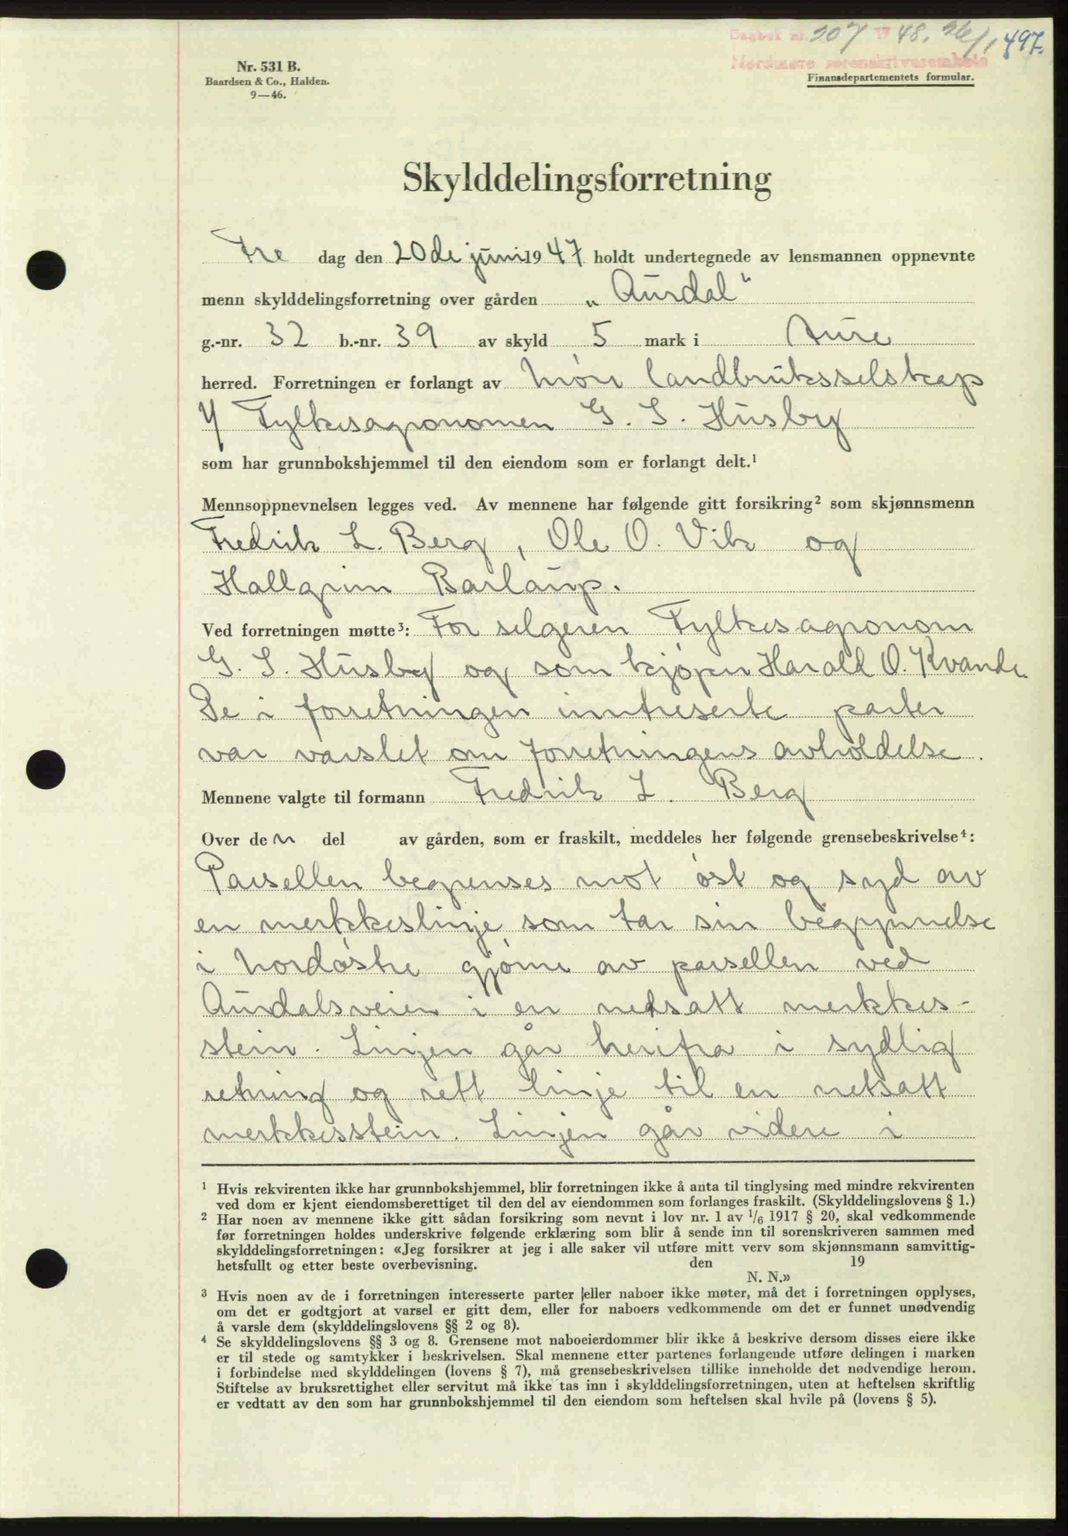 Dagbok nr. 207 19 48. 26/1 497.
Nordmøre sorenskriverembete
Nr. 531 B.
Baardsen & Co., Halden.
9—46.
Finansdepartementets formular.
Skylddelingsforretning
Fre dag den 20de juni 1947 holdt undertegnede av lensmannen oppnevnte
menn skylddelingsforretning over gården „Aurdal"
g.-nr. 32 b.-nr. 39 av skyld 5 mark i Aure
herred. Forretningen er forlangt av Møre landbruksselskap
v/ Fylkesagronomen G. S. Husby
som har grunnbokshjemmel til den eiendom som er forlangt delt.¹
Mennsoppnevnelsen legges ved. Av mennene har følgende gitt forsikring² som skjønnsmenn
Fredrik L. Berg, Ole O. Vik og
Hallgrim Barlaup.
Ved forretningen møtte³: For selgeren Fylkesagronom
G. S. Husby og som kjøper Harald O. Kvande
De i forretningen inntreserte parter
var varslet om forretningens avholdelse.
Mennene valgte til formann Fredrik L. Berg
Over den del av gården, som er fraskilt, meddeles her følgende grensebeskrivelse⁴:
Parsellen begrenses mot øst og syd av
en merkkeslinje som tar sin begynnelse
i Nordøstre gjørne av parsellen ved
Aurdalsveien i en nedsatt merkkes-
stein. Linjen går herifra i sydlig
retning og rett linje til en netsatt
merkkesstein. Linjen går videre i
¹ Hvis rekvirenten ikke har grunnbokshjemmel, blir forretningen ikke å anta til tinglysing med mindre rekvirenten
ved dom er kjent eiendomsberettiget til den del av eiendommen som forlanges fraskilt. (Skylddelingslovens § 1.)
² Har noen av mennene ikke gitt sådan forsikring som nevnt i lov nr. 1 av 1/6 1917 § 20, skal vedkommende
før forretningen holdes underskrive følgende erklæring som blir å sende inn til sorenskriveren sammen med
skylddelingsforretningen: «Jeg forsikrer at jeg i alle saker vil utføre mitt verv som skjønnsmann samvittig-
hetsfullt og etter beste overbevisning. den 19
N. N.»
³ Hvis noen av de i forretningen interesserte parter eller naboer ikke møter, må det i forretningen opplyses,
om det er godtgjort at varsel er gitt dem, eller for naboers vedkommende om det er funnet unødvendig
å varsle dem (skylddelingslovens §§ 2 og 8).
⁴ Se skylddelingslovens §§ 3 og 8. Grensene mot naboeierdommer blir ikke å beskrive dersom disses eiere ikke
er til stede og samtykker i beskrivelsen. Skal mennene etter partenes forlangende utføre delingen i marken
i forbindelse med skylddelingen (lovens § 7), må grensebeskrivelsen tillike inneholde det nødvendige herom.
Stiftelse av bruksrettighet eller servitut må ikke tas inn i skylddelingsforretningen, uten at heftelsen skriftlig
er vedtatt av den som har grunnbokshjemmel til den eiendom som heftelsen skal hvile på (lovens § 5).